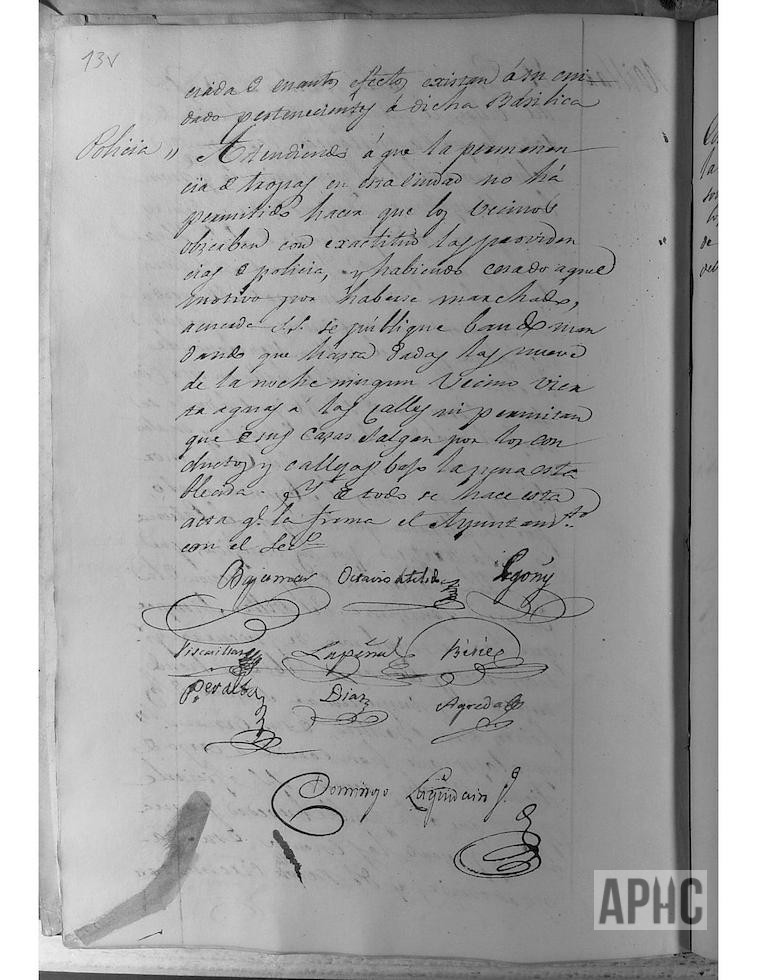 13v
ciada de cuantos efectos existan á su cui
dado pertenecientes á dicha Básilica
Policia " Atendiendo á que la permanen
cia de tropas en esta ciudad no há
permitido hacer que los vecinos
observen con exactitud las providen
cias de policia, y habiendo cesado aquel
motivo por haberse marchado,
acuerda S.S. se públique bando man
dando que hasta dadas las nueve
de la noche ningun vecino vier
ta aguas á las calles ni permitan
que de sus casas salgan por los con
ductos y callejas bajo la pena esta
blecida. Y de todo se hace esta
acta q.e la firma el Ayuntam.to
con el Sec.o
Octavio de Toledo
Lapeña
Peralta Diaz Agreda
Domingo
APHC